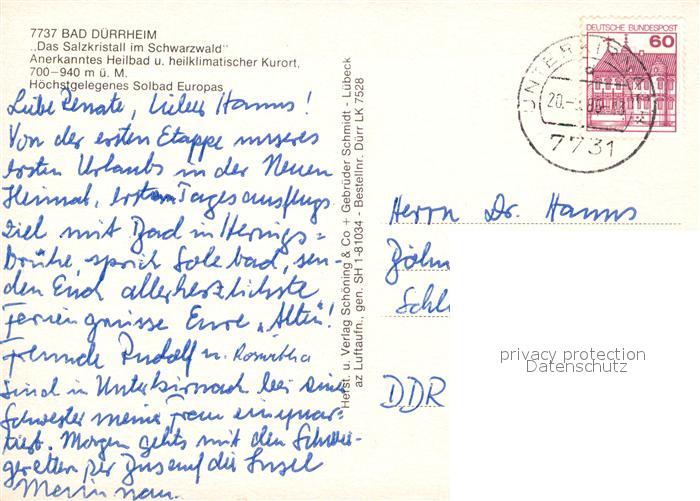 7737 BAD DÜRRHEIM
„Das Salzkristall im Schwarzwald"
Anerkanntes Heilbad u. heilklimatischer Kurort,
700–940 m ü. M.
Höchstgelegenes Solbad Europas
Liebe Renate, lieber Hanns!
Von der ersten Etappe unseres
ersten Urlaubs in der Neuen
Heimat, erstem Tagesausflugs
ziel mit Bad in Herings=
brühe, sprich Sole bad, sen-
den Euch allerherzlichste
Feriengrüsse Eure „Alten!
Freunde Rudolf u. Roswitha
Sind in Unterkirnach bei einer
Schwester meiner Frau einquar-
tiert. Morgen gehts mit den
per Bus auf die Insel
Meinnau.
Herst. u. Verlag Schöning & Co + Gebrüder Schmidt - Lübeck
az Luftaufn., gen. SH 1-81034 - Bestellnr. Dürr LK 7528
DEUTSCHE BUNDESPOST
60
7731
Herrn Dr. Hanns
DDR
privacy protection
Datenschutz